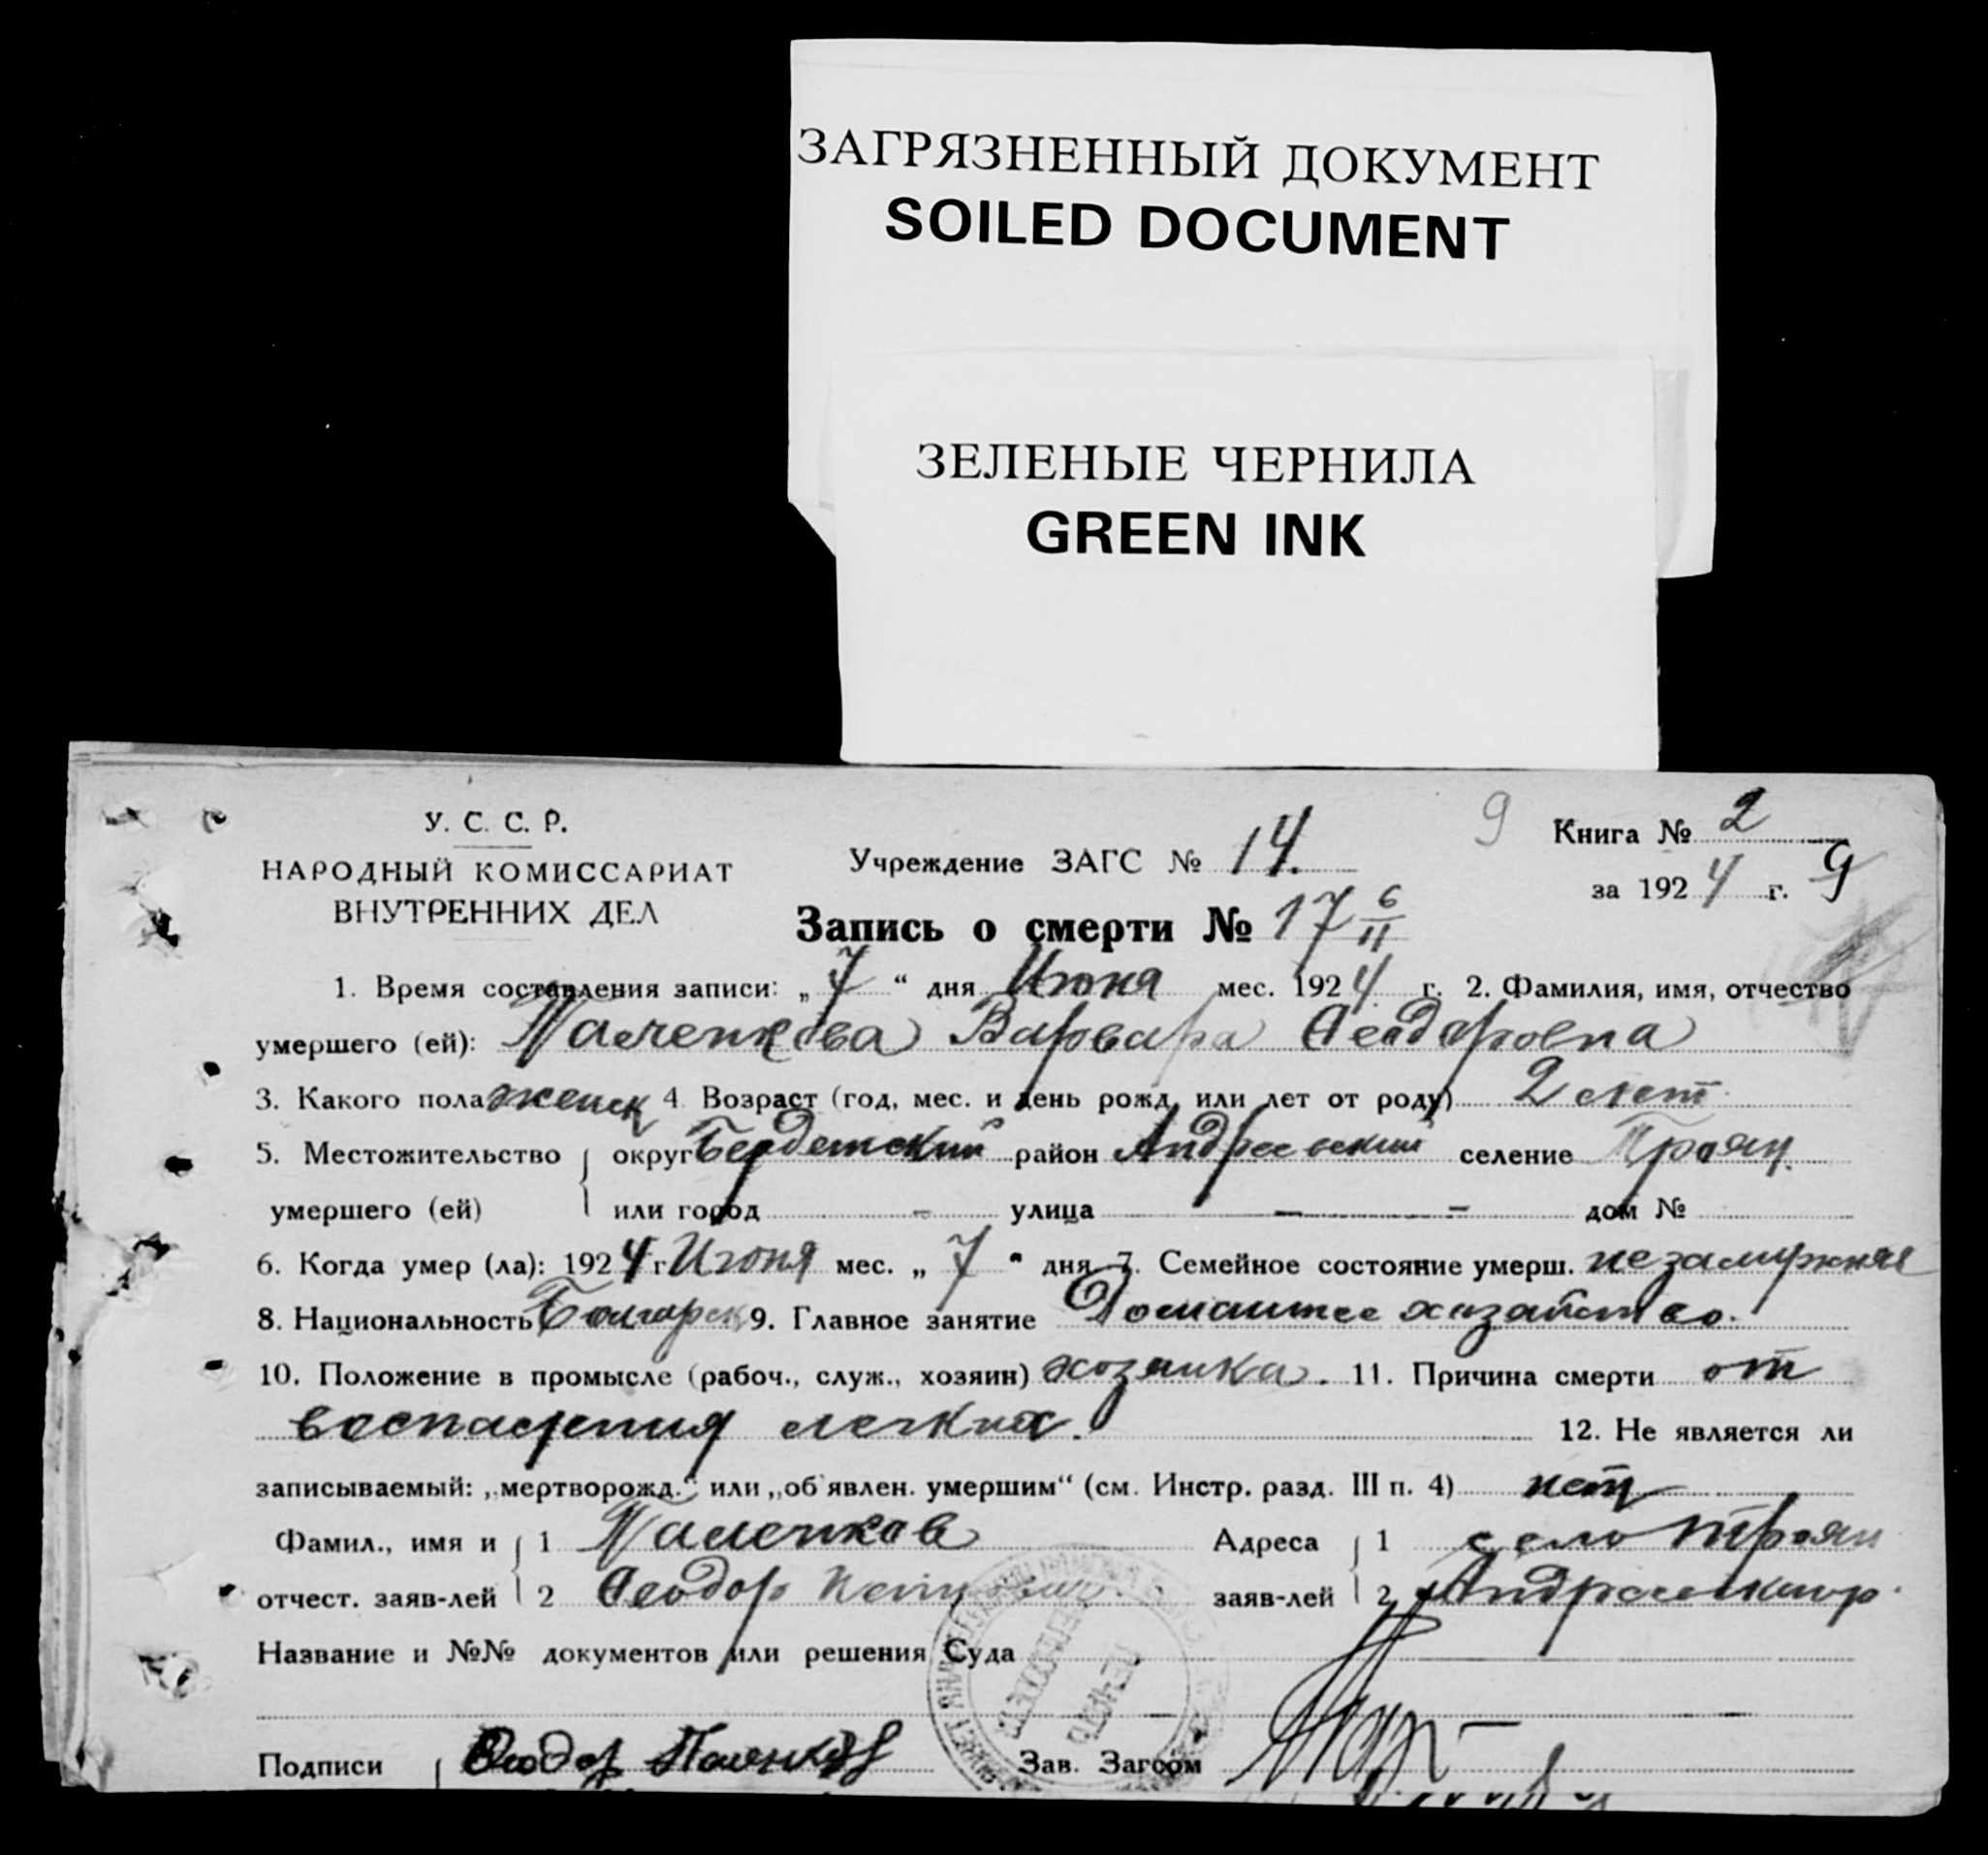 ЗАГРЯЗНЕННЫЙ ДОКУМЕНТ
SOILED DOCUMENT
ЗЕЛЕНЫЕ ЧЕРНИЛА
GREEN INK
У. С. С. Р.
НАРОДНЫЙ КОМИССАРИАТ
ВНУТРЕННИХ ДЕЛ
Учреждение ЗАГС № 14.
9 Книга № 2
за 1924 г. 9
Запись о смерти № 17 6/11
1. Время составления записи: „7“ дня Июня мес. 1924 г. 2. Фамилия, имя, отчество
умершего (ей): Паленкова Варвара Феодоровна
3. Какого пола женск 4 Возраст (год, мес. и день рожд. или лет от роду) 2 лет
5. Местожительство округ Бердянский район Андреевский селение Троян
умершего (ей) или город – улица — – дом №
6. Когда умер (ла): 1924 г Июня мес. „7“ дня 7. Семейное состояние умерш. незамужняя
8. Национальность Болгарск 9. Главное занятие Домашнее хозайство.
10. Положение в промысле (рабоч., служ., хозяин) хозяика. 11. Причина смерти от
воспаления легких. 12. Не является ли
записываемый: „мертворожд.“ или „об'явлен. умершим“ (см. Инстр. разд. III п. 4) нет
Фамил., имя и 1 Паленков Адреса 1 село Троян
отчест. заяв-лей 2 Феодор заяв-лей 2
Название и №№ документов или решения Суда
Подписи Феодор Паленков Зав. Загсом